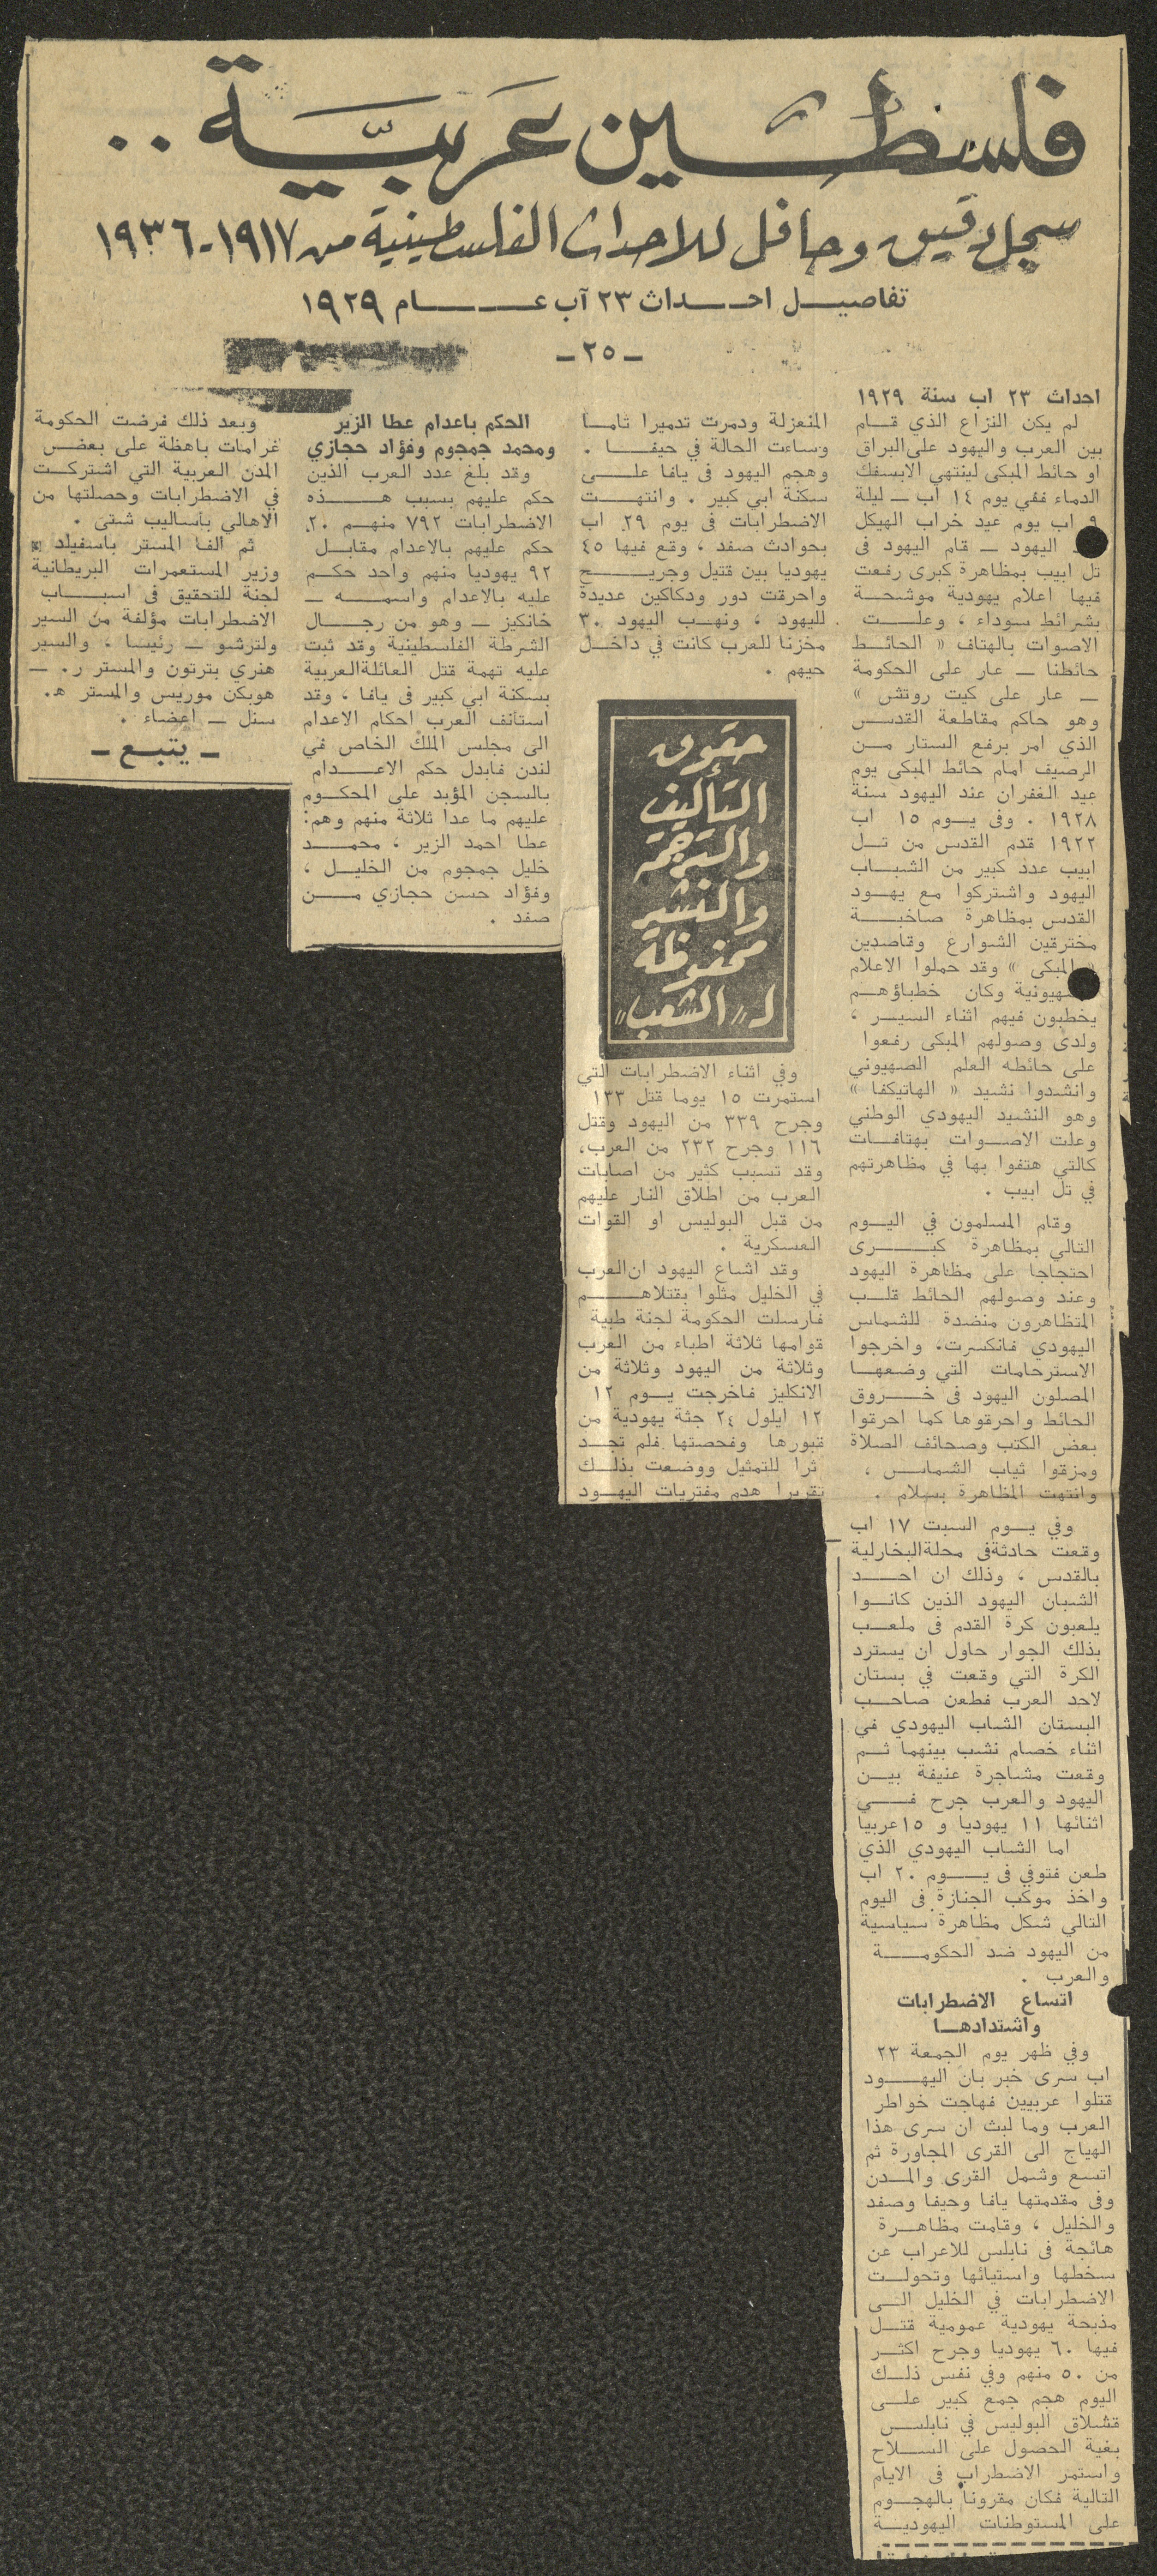 فلسطين عربية ..
سجل دقيق وحافل للاحداث الفلسطينية من ١٩١٧ - ١٩٣٦
تفاصيل احداث ٢٣ آب عام ١٩٢٩
- ٢٥ -
احداث ٢٣ اب سنة ١٩٢٩
لم يكن النزاع الذي قام
بين العرب واليهود على البراق
او حائط المبكى لينتهي الابسفك
الدماء ففي يوم ١٤ اب - ليلة
٩ اب يوم عيد خراب الهيكل
اليهود - قام اليهود فى
تل ابيب بمظاهرة كبرى رفعت
فيها اعلام يهودية موشحة
بشرائط سوداء ، وعلت
الاصوات بالهتاف « الحائط
حائطنا - عار على الحكومة
- عار على كيت روتش »
وهو حاكم مقاطعة القدس
الذي امر برفع الستار من
الرصيف امام حائط المبكى يوم
عيد الغفران عند اليهود سنة
١٩٢٨ . وفى يوم ١٥ اب
١٩٢٢ قدم القدس من تل
ابيب عدد كبير من الشباب
اليهود واشتركوا مع يهود
القدس بمظاهرة صاخبة
مخترقين الشوارع وقاصدين
« المبكى » وقد حملوا الاعلام
الصهيونية وكان خطباؤهم
يخطبون فيهم اثناء السير ،
ولدى وصولهم المبكى رفعوا
على حائطه العلم الصهيوني
وانشدوا نشيد « الهاتيكفا »
وهو النشيد اليهودي الوطني
وعلت الاصوات بهتافات
كالتي هتفوا بها في مظاهرتهم
في تل ابيب .
وقام المسلمون في اليوم
التالي بمظاهرة كبرى
احتجاجا على مظاهرة اليهود
وعند وصولهم الحائط قلب
المتظاهرون منضدة للشماس
اليهودي فانكسرت، واخرجوا
الاسترحامات التي وضعها
المصلون اليهود فى خروق
الحائط واحرقوها كما احرقوا
بعض الكتب وصحائف الصلاة
ومزقوا ثياب الشماس ،
وانتهت المظاهرة بسلام .
وفي يوم السبت ١٧ اب
وقعت حادثة فى محلة البخارلية
بالقدس ، وذلك ان احد
الشبان اليهود الذين كانوا
يلعبون كرة القدم فى ملعب
بذلك الجوار حاول ان يسترد
الكرة التي وقعت في بستان
لاحد العرب فطعن صاحب
البستان الشاب اليهودي في
اثناء خصام نشب بينهما ثم
وقعت مشاجرة عنيفة بين
اليهود والعرب جرح في
اثنائها ١١ يهوديا و ١٥ عربيا
اما الشاب اليهودي الذي
طعن فتوفي فى يوم ٢٠ اب
واخذ موكب الجنازة فى اليوم
التالي شكل مظاهرة سياسية
من اليهود ضد الحكومة
والعرب .
اتساع الاضطرابات
واشتدادها
وفي ظهر يوم الجمعة ٢٣
اب سرى خبر بان اليهود
قتلوا عربيين فهاجت خواطر
العرب وما لبث ان سرى هذا
الهياج الى القرى المجاورة ثم
اتسع وشمل القرى والمدن
وفى مقدمتها يافا وحيفا وصفد
والخليل ، وقامت مظاهرة
هائجة فى نابلس للاعراب عن
سخطها واستيائها وتحولت
الاضطرابات في الخليل الى
مذبحة يهودية عمومية قتل
فيها ٦٠ يهوديا وجرح اكثر
من ٥٠ منهم وفي نفس ذلك
اليوم هجم جمع كبير على
قشلاق البوليس في نابلس
بغية الحصول على السلاح
واستمر الاضطراب فى الايام
التالية فكان مقرونا بالهجوم
على المستوطنات اليهودية
المنعزلة ودمرت تدميرا تاما
وساءت الحالة في حيفا .
وهجم اليهود فى يافا على
سكنة ابي كبير . وانتهت
الاضطرابات فى يوم ٢٩ اب
بحوادث صفد ، وقع فيها ٤٥
يهوديا بين قتيل وجريح
واحرقت دور ودكاكين عديدة
لليهود ، ونهب اليهود ٣٠
مخزنا للعرب كانت في داخل
حيهم .
حقوق
التأليف
والترجمة
والنشر
محفوظة
لـ "الشعب"
وفي اثناء الاضطرابات التي
استمرت ١٥ يوما قتل ١٣٣
وجرح ٣٣٩ من اليهود وقتل
١١٦ وجرح ٢٣٢ من العرب،
وقد تسبب كثير من اصابات
العرب من اطلاق النار عليهم
من قبل البوليس او القوات
العسكرية .
وقد اشاع اليهود ان العرب
في الخليل مثلوا بقتلاهم
فارسلت الحكومة لجنة طبية
قوامها ثلاثة اطباء من العرب
وثلاثة من اليهود وثلاثة من
الانكليز فاخرجت يوم ١٢
١٢ ايلول ٢٤ جثة يهودية من
قبورها وفحصتها فلم تجد
ثرا للتمثيل ووضعت بذلك
تقريرا هدم مفتريات اليهود
الحكم باعدام عطا الزير
ومحمد جمجوم وفؤاد حجازي
وقد بلغ عدد العرب الذين
حكم عليهم بسبب هذه
الاضطرابات ٧٩٢ منهم ٢٠
حكم عليهم بالاعدام مقابل
٩٢ يهوديا منهم واحد حكم
عليه بالاعدام واسمه -
خانكيز - وهو من رجال
الشرطة الفلسطينية وقد ثبت
عليه تهمة قتل العائلة العربية
بسكنة ابي كبير فى يافا ، وقد
استأنف العرب احكام الاعدام
الى مجلس الملك الخاص في
لندن فابدل حكم الاعدام
بالسجن المؤبد على المحكوم
عليهم ما عدا ثلاثة منهم وهم:
عطا احمد الزير ، محمد
خليل جمجوم من الخليل ،
وفؤاد حسن حجازي من
صفد .
وبعد ذلك فرضت الحكومة
غرامات باهظة على بعض
المدن العربية التي اشتركت
في الاضطرابات وحصلتها من
الاهالي بأساليب شتى .
ثم الفا المستر باسفيلد
وزير المستعمرات البريطانية
لجنة للتحقيق فى اسباب
الاضطرابات مؤلفة من السير
ولترشو - رئيسا ، والسير
هنري بترتون والمستر ر. -
هوبكن موريس والمستر ه.
سنل - اعضاء .
- يتبع -